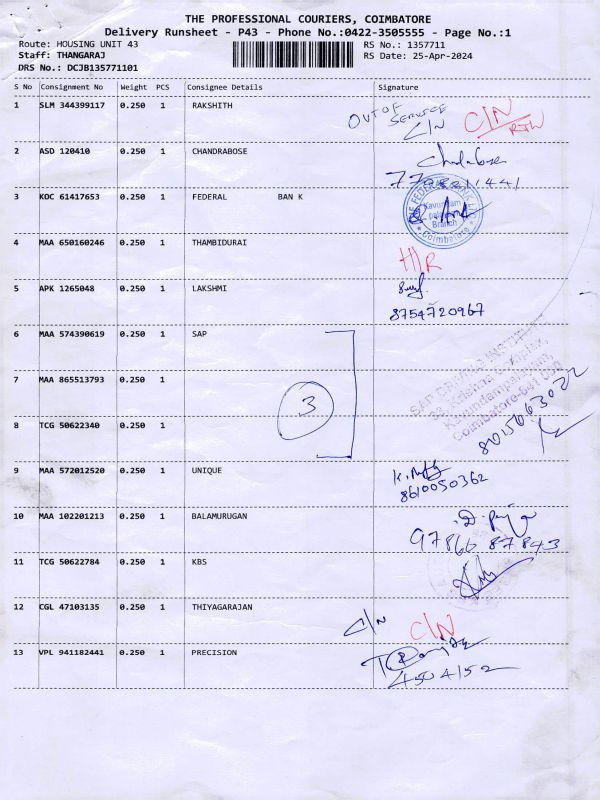 THE PROFESSIONAL COURIERS, COIMBATORE
Delivery Runsheet - P43 - Phone No.:0422-3505555 - Page No.:1
Route: HOUSING UNIT 43 RS No.: 1357711
Staff: THANGARAJ RS Date: 25-Apr-2024
DRS No.: DCJB135771101
S No Consignment No Weight PCS Consignee Details Signature
1 SLM 344399117 0.250 1 RAKSHITH OUT OF SERVICE C/N C/N RTN
2 ASD 120410 0.250 1 CHANDRABOSE Chandrabose
3 KOC 61417653 0.250 1 FEDERAL BAN K THE FEDERAL BANK Kavundam palayam Branch Coimbatore
4 MAA 650160246 0.250 1 THAMBIDURAI H/R
5 APK 1265048 0.250 1 LAKSHMI 8754720967
6 MAA 574390619 0.250 1 SAP
7 MAA 865513793 0.250 1 3
8 TCG 50622340 0.250 1 Krishna Complex, Kavundampalayam, Coimbatore-641 030 8015063022
9 MAA 572012520 0.250 1 UNIQUE 8610050362
10 MAA 102201213 0.250 1 BALAMURUGAN 97866 87843
11 TCG 50622784 0.250 1 KBS
12 CGL 47103135 0.250 1 THIYAGARAJAN C/N C/N
13 VPL 941182441 0.250 1 PRECISION 4504152